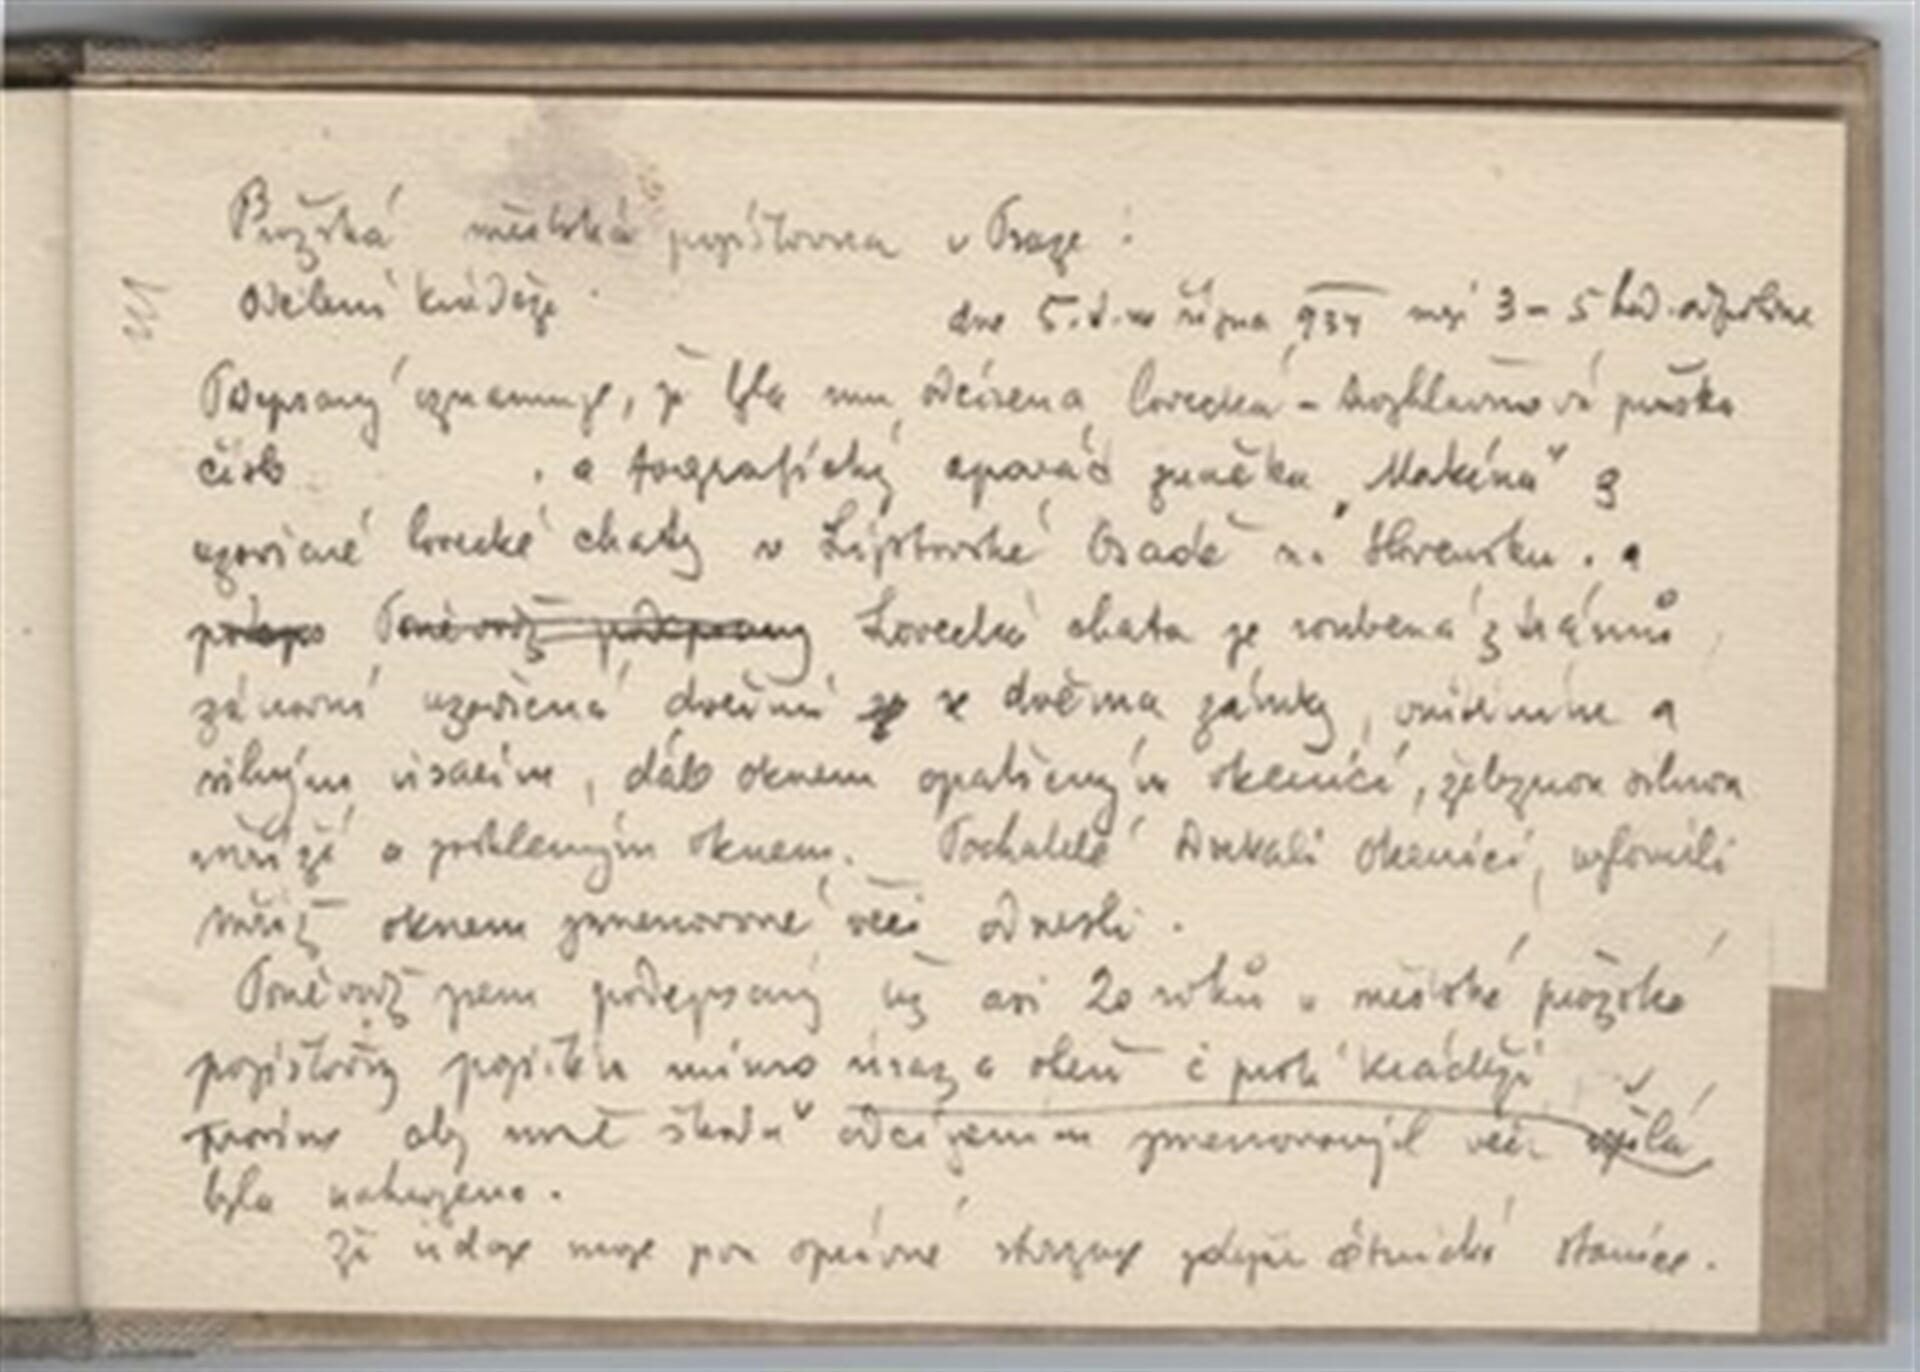 Pražská městská pojišťovna v Praze:
oddělení krádeže.
dne 5. t.m. října 934 mezi 3 – 5 hod. odpoledne
Podepsaný oznamuje, že byla mu odcizena lovecká - kozlicová puška
číslo . a fotografický aparát značka "Makina" z
uzavřené lovecké chaty v Liptovské Osadě na Slovensku. a
Poněvadž podepsaný Lovecká chata je roubená z trámů
uzavřená dveřmi se dvěma zámky, a
silným visacím, dále oknem opatřeným okenicí, železnou silnou
mříží a zaskleným oknem. Pachatelé okenici, vylomili
mříž oknem jmenované věci odnesli.
Poněvadž jsem podepsaný už asi 20 roků u městské pražské
pojišťovny pojištěn mimo úraz a oheň i proti krádeži
prosím aby mně škoda odcizením jmenovaných věcí
byla nahrazena.
Že údaje moje jsou správné zdejší četnická stanice.